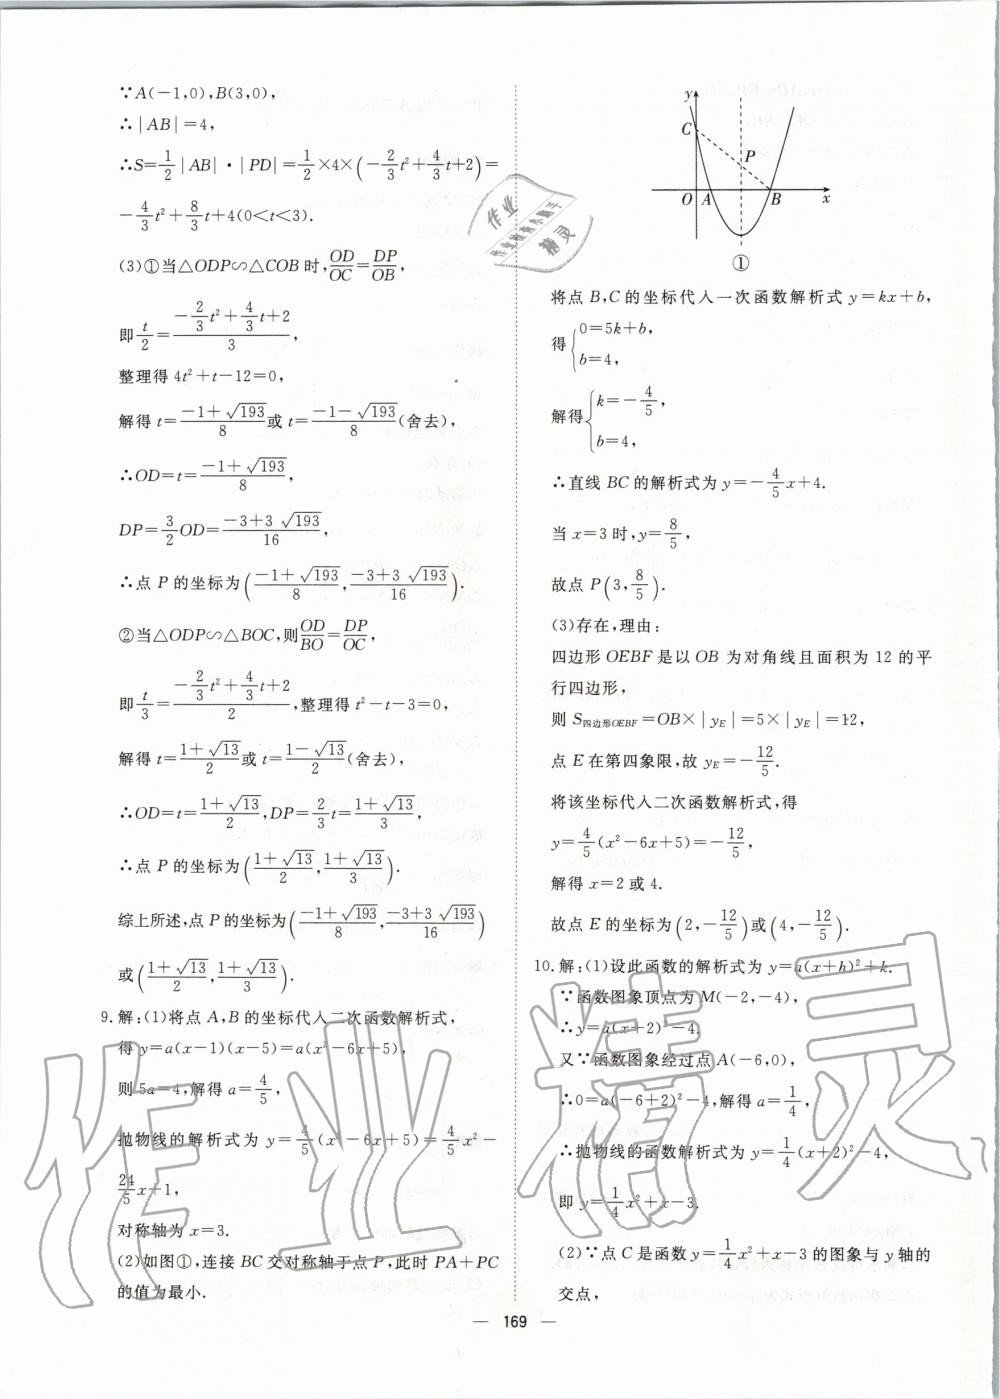 ∵A(-1,0),B(3,0),
∴|AB|=4,
∴S=1/2|AB|·|PD|=1/2×4×(-2/3t²+4/3t+2)=
-4/3t²+8/3t+4(0<t<3).
(3)①当△ODP∽△COB时,OD/OC=DP/OB,
即t/2=(-2/3t²+4/3t+2)/3,
整理得4t²+t-12=0,
解得t=(-1+√193)/8或t=(-1-√193)/8(舍去),
∴OD=t=(-1+√193)/8,
DP=3/2OD=(-3+3√193)/16,
∴点P的坐标为((-1+√193)/8,(-3+3√193)/16).
②当△ODP∽△BOC,则OD/BO=DP/OC,
即t/3=(-2/3t²+4/3t+2)/2,整理得t²-t-3=0,
解得t=(1+√13)/2或t=(1-√13)/2(舍去),
∴OD=t=(1+√13)/2,DP=2/3t=(1+√13)/3,
∴点P的坐标为((1+√13)/2,(1+√13)/3).
综上所述,点P的坐标为((-1+√193)/8,(-3+3√193)/16)
或((1+√13)/2,(1+√13)/3).
9.解:(1)将点A,B的坐标代入二次函数解析式,
得y=a(x-1)(x-5)=a(x²-6x+5),
则5a=4,解得a=4/5,
抛物线的解析式为y=4/5(x²-6x+5)=4/5x²-
24/5x+1,
对称轴为x=3.
(2)如图①,连接BC交对称轴于点P,此时PA+PC
的值为最小.
y
C
P
O
A
B
x
①
将点B,C的坐标代入一次函数解析式y=kx+b,
得{0=5k+b,
b=4,
解得{k=-4/5,
b=4,
∴直线BC的解析式为y=-4/5x+4.
当x=3时,y=8/5,
故点P(3,8/5).
(3)存在,理由:
四边形OEBF是以OB为对角线且面积为12的平
行四边形,
则S四边形OEBF=OB×|yE|=5×|yE|=12,
点E在第四象限,故yE=-12/5.
将该坐标代入二次函数解析式,得
y=4/5(x²-6x+5)=-12/5,
解得x=2或4.
故点E的坐标为(2,-12/5)或(4,-12/5).
10.解:(1)设此函数的解析式为y=a(x+h)²+k.
∵函数图象顶点为M(-2,-4),
∴y=a(x+2)²-4.
又∵函数图象经过点A(-6,0),
∴0=a(-6+2)²-4,解得a=1/4,
∴抛物线的函数解析式为y=1/4(x+2)²-4,
即y=1/4x²+x-3.
(2)∵点C是函数y=1/4x²+x-3的图象与y轴的
交点,
— 169 —
作业精灵
作业
精灵